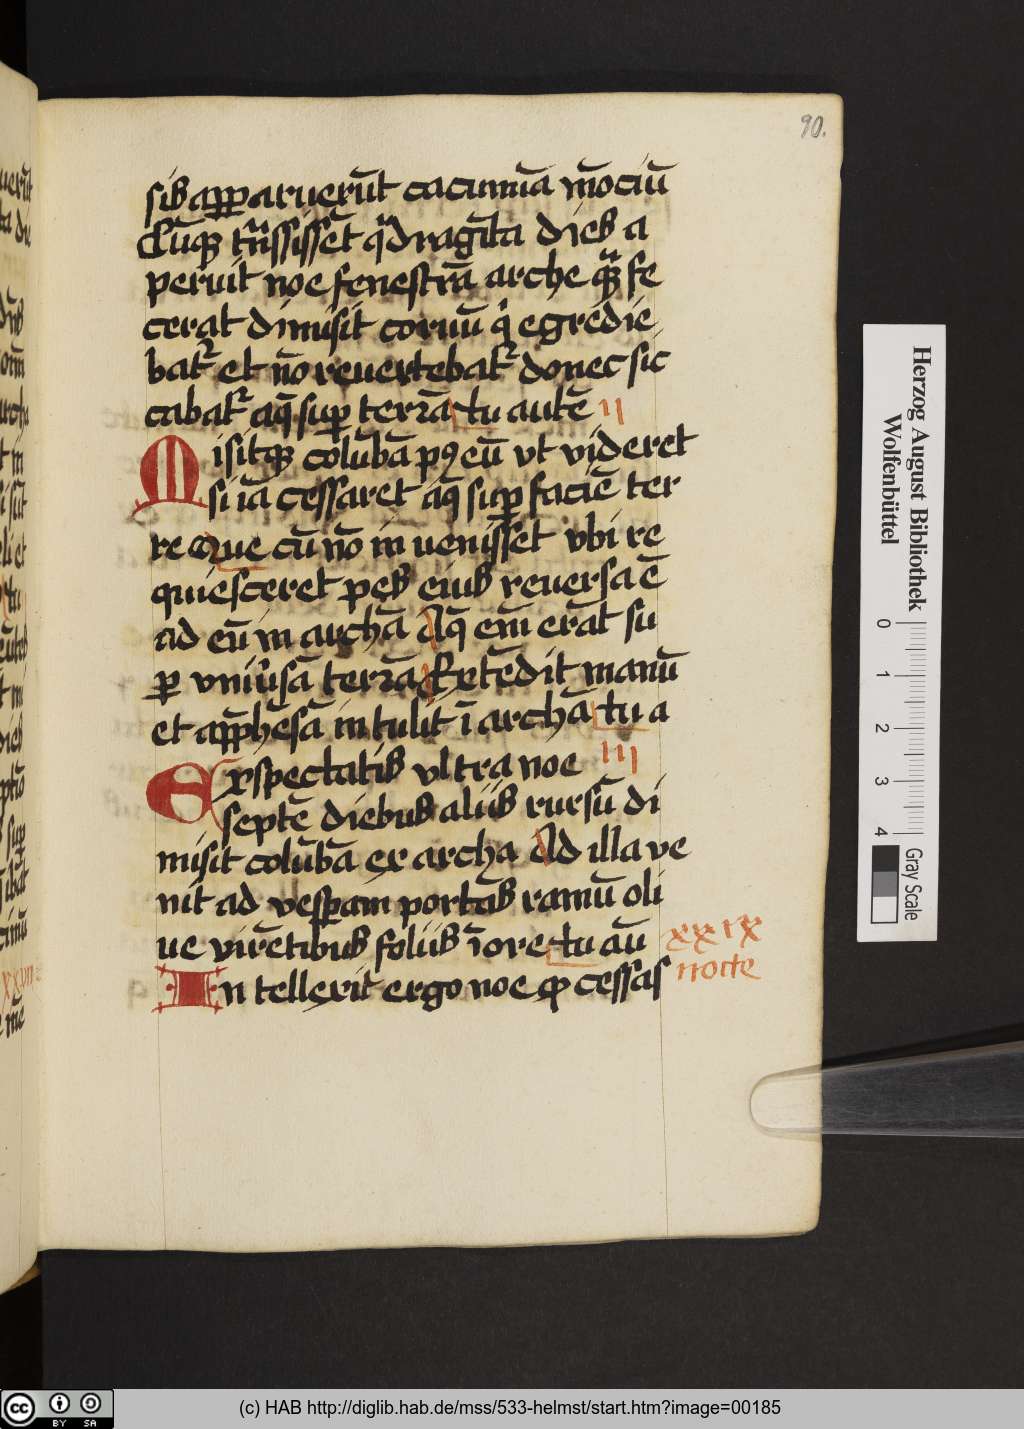 90.
sib apparuerūt cacumīa mōciū
Cūq trāssissēt qͣdragīta dieb a
peruit noe fenestrā arche quā fe
cerat dimisit coruū qͥ egredie
bat᷑ et nō reuertebat᷑ donec sic
cabat᷑ aq̄ sup terrā tu autē II
Misitq colūbā p9 eū vt videret
si iā cessaret aq̄ sup faciē ter
re Que cū nō in uenisset vbi re
quiesceret pes eius reuersa ē
ad eū in archā Aq̄ em̄ erāt su
per vniūsā terrā Extēdit manū
et appͣhēsā in tulit ī archā tu a
III
Exspectatis vltra noe
septē diebus aliis rursū di
misit colūbā ex archa Ad illa ve
nit ad vesperam portās ramū oli
ue virētibus foliis ī ore tu aū xxix
nocte
In tellexit ergo noe ꝙ cessas
Herzog August Bibliothek
Wolfenbüttel
0 1 2 3 4
Gray Scale
cc BY SA
(c) HAB http://diglib.hab.de/mss/533-helmst/start.htm?image=00185